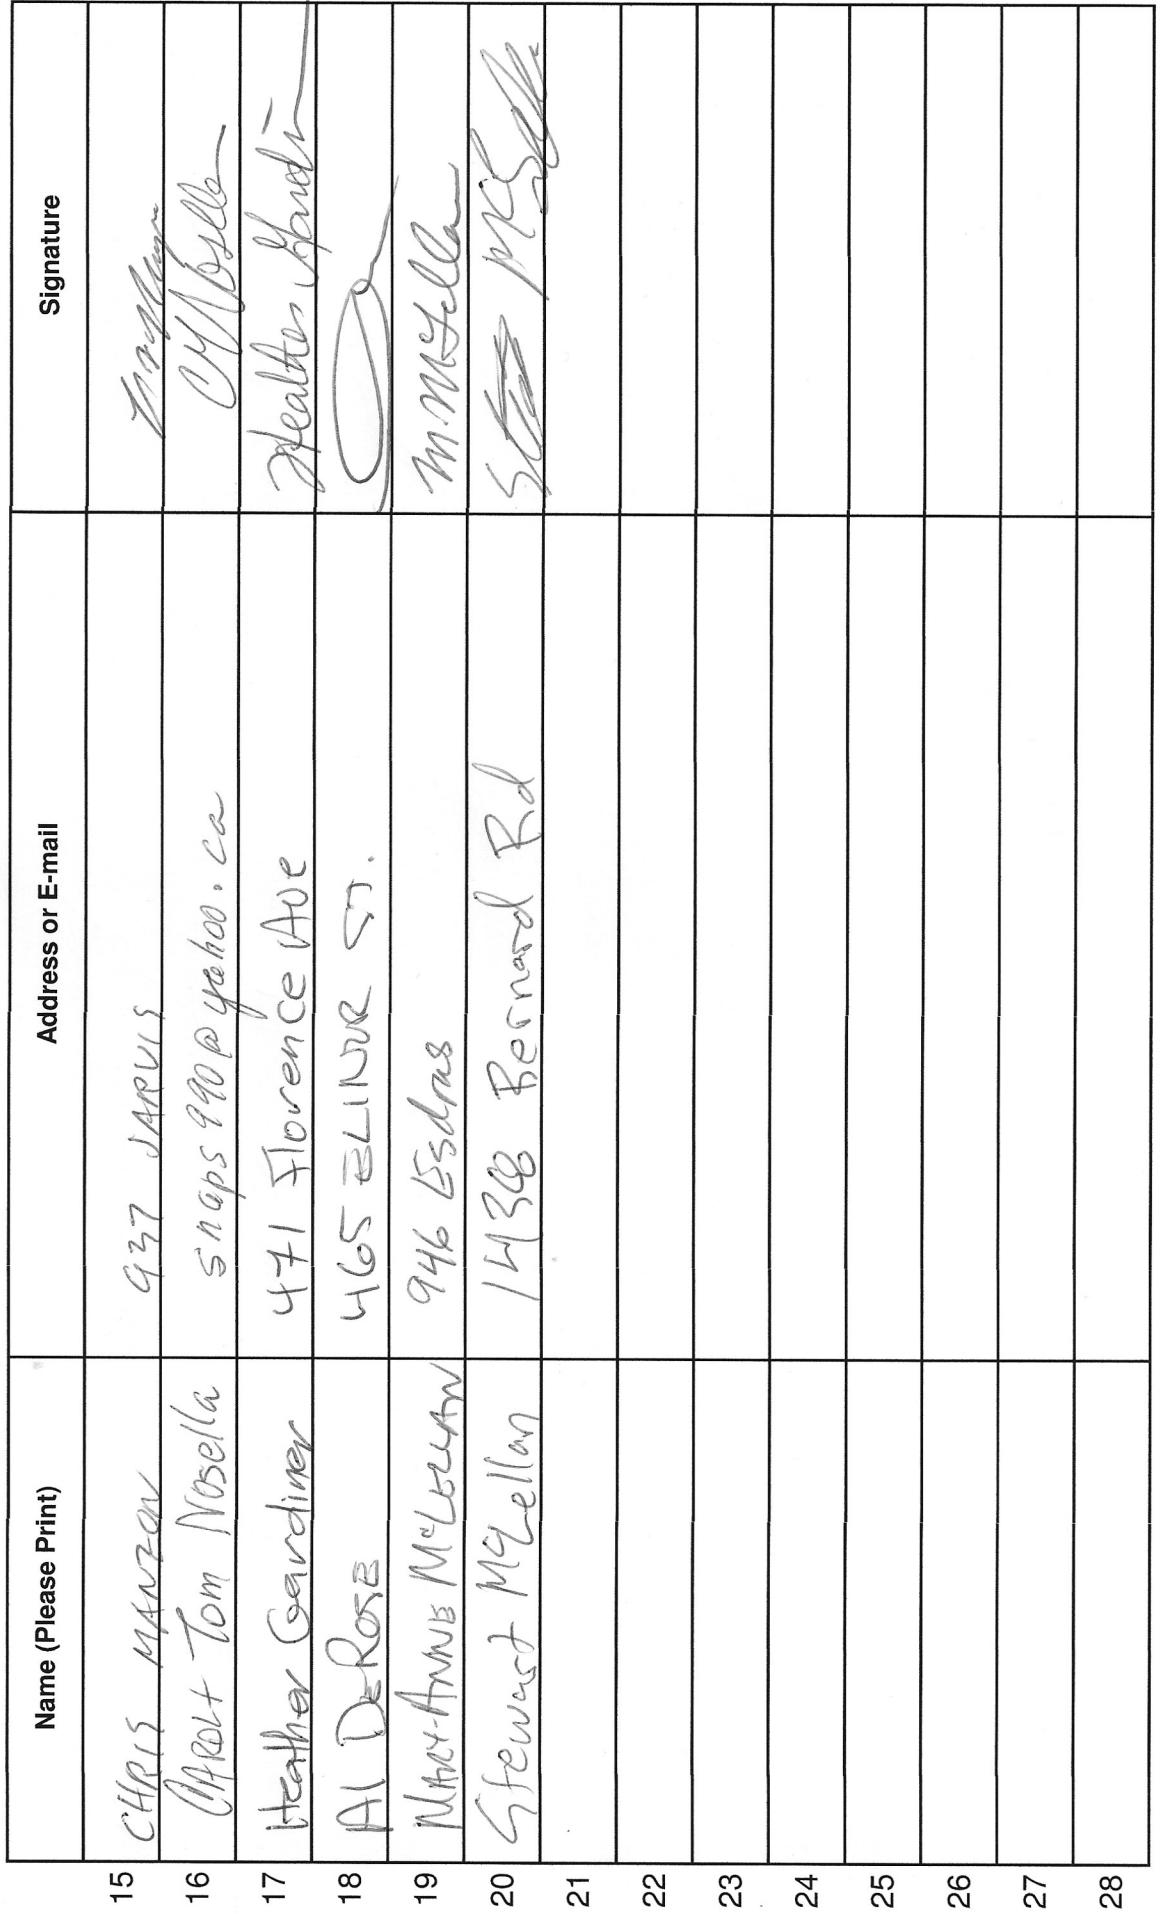 Name (Please Print) Address or E-mail Signature
15 CHRIS MANZON 937 JARVIS
16 CAROL + TOM NOSELLA snaps990@yahoo.ca CMNosella
17 Heather Gardiner 471 Florence Ave Heather Gardin
18 Al DeROSE 465 ELINOR ST.
19 MARY-ANNE McLELLAN 946 Esdras M. McLella
20 Stewart McLellan 1436 Bernard Rd
21
22
23
24
25
26
27
28